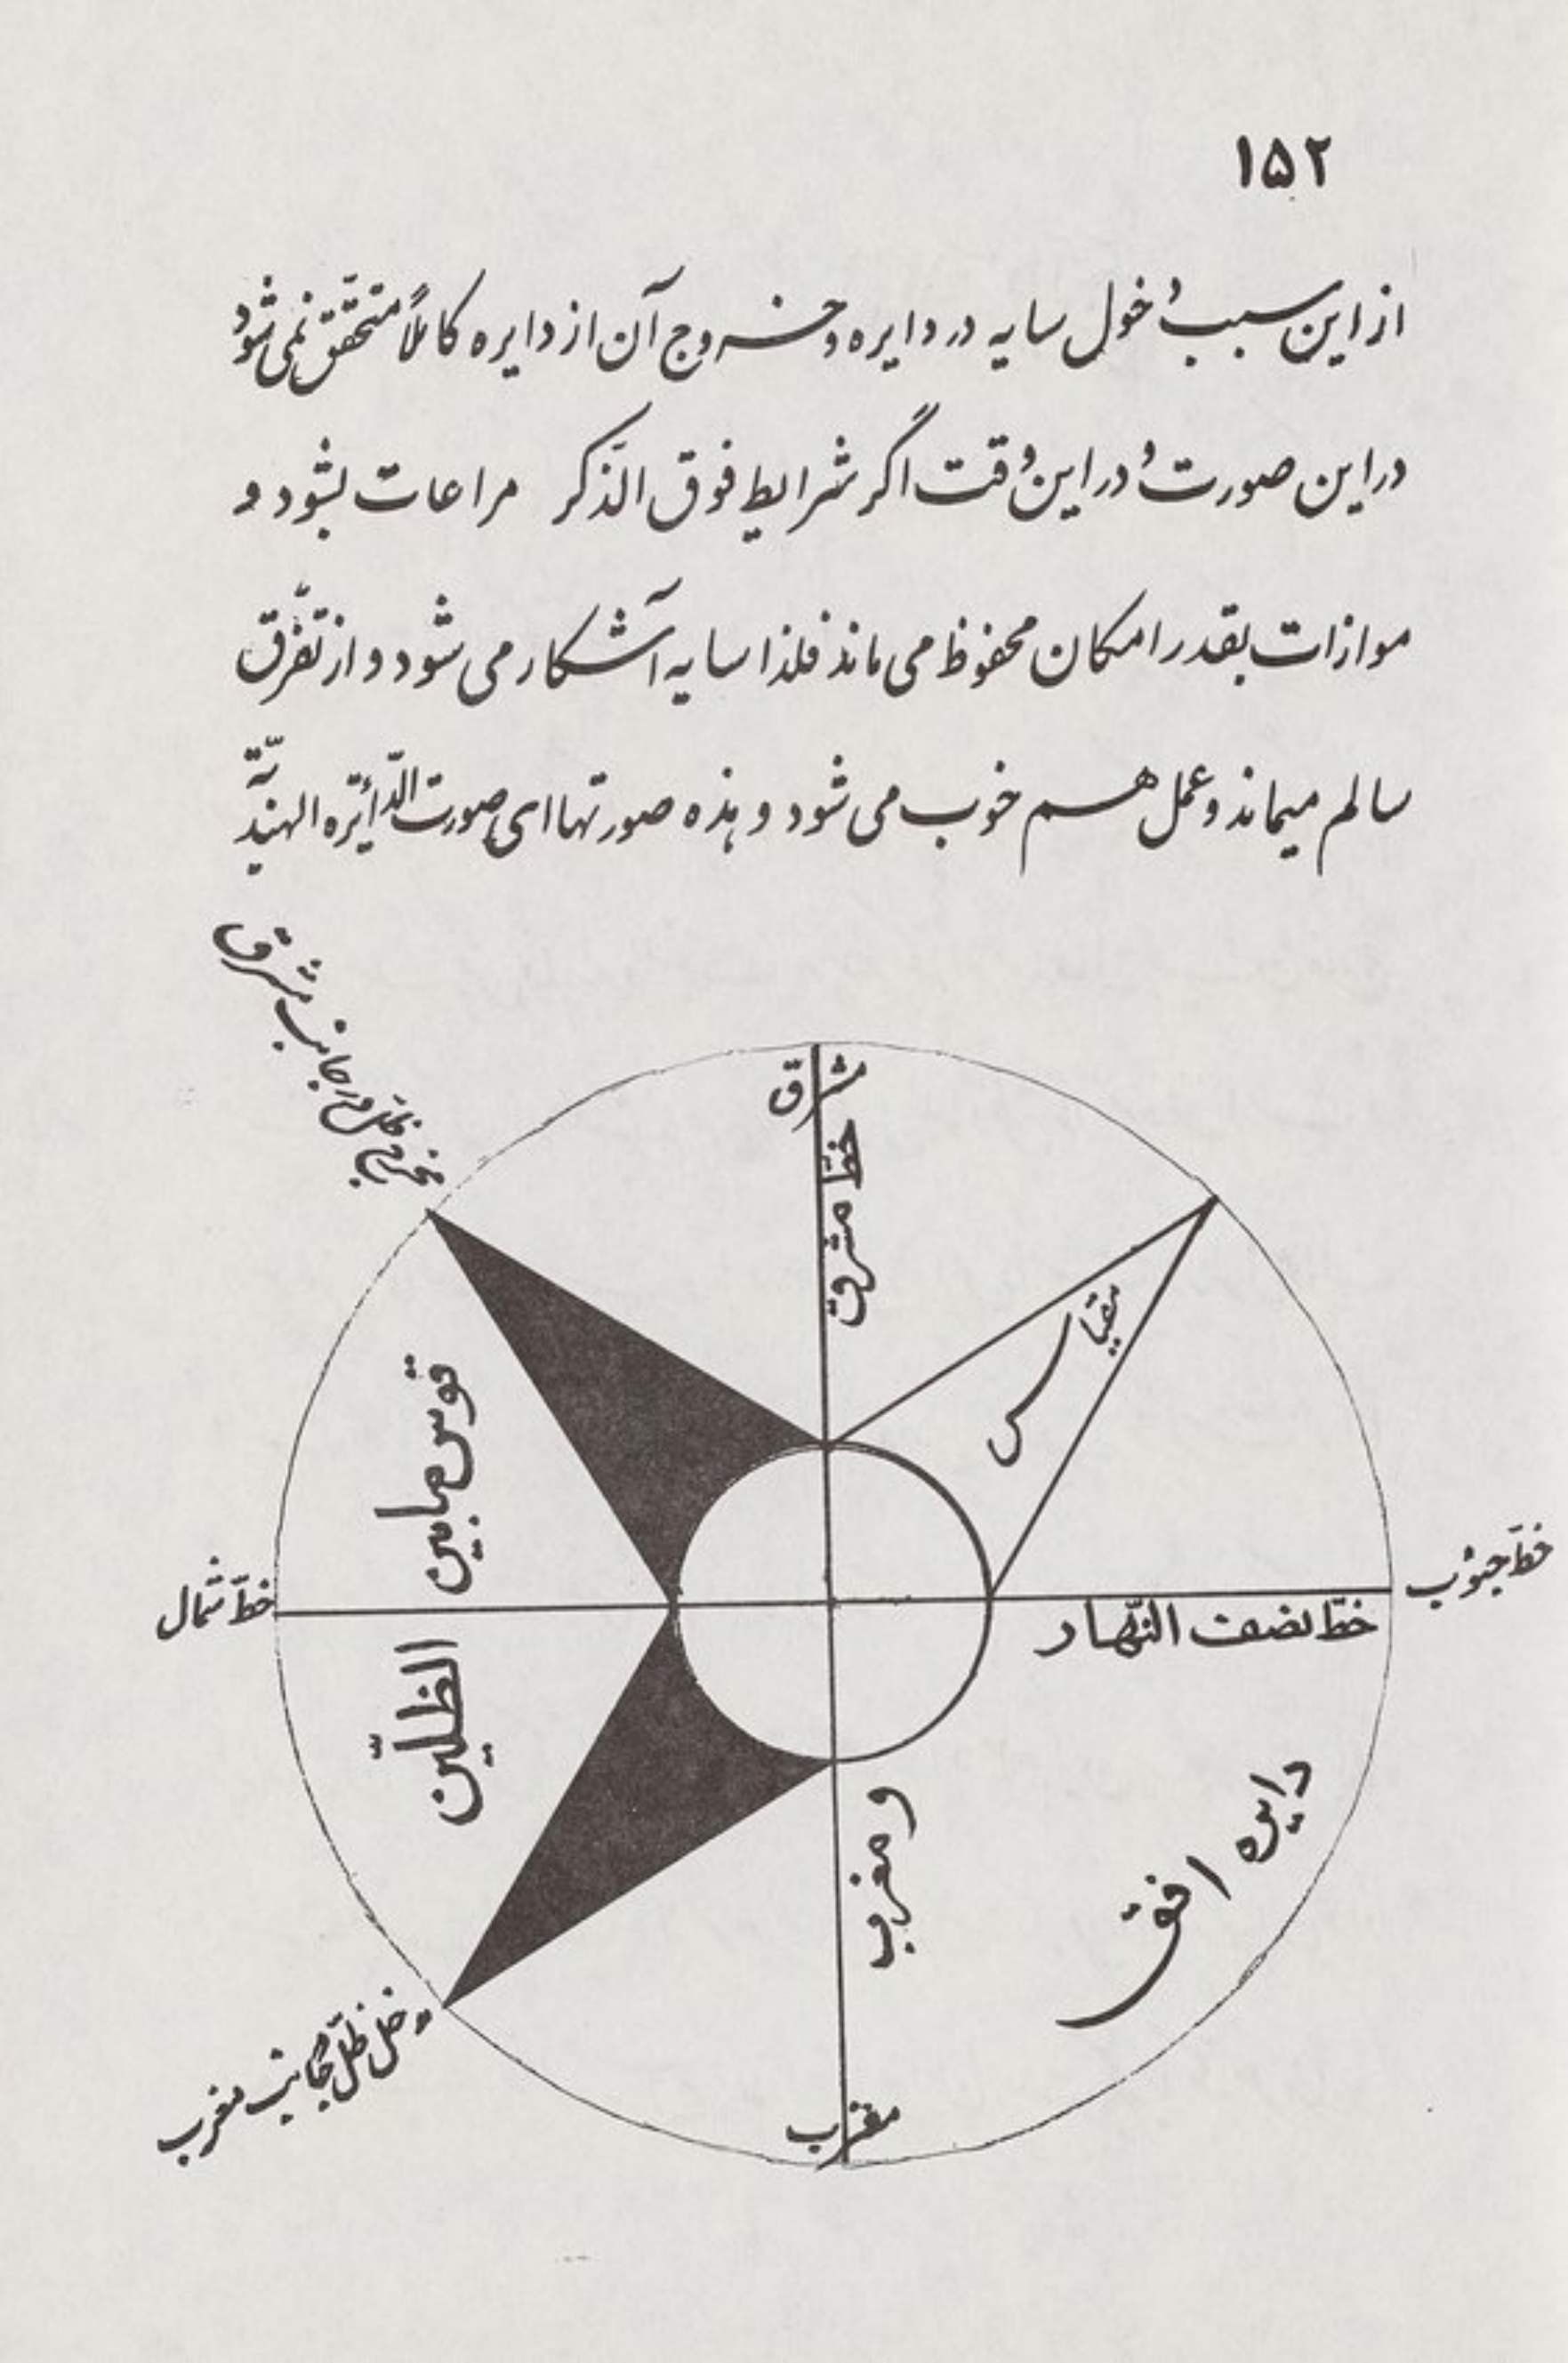 ۱۵۲
از این سبب دخول سایه در دایره و خروج آن از دایره کاملاً متحقق نمی شود و
در این صورت و در این وقت اگر شرایط فوق الذکر مراعات بشود و
موازات بقدر امکان محفوظ می ماند فلذا سایه آشکار می شود و از تفرّق
سالم میماند و عمل هسم خوب می شود و هذه صورتها ای صورت الدّائره الهندیّة
مخرج ظل جانب مشرق
مشرق
خطّ مشرق
مقیاس
قوس مابین
خطّ شمال
خطّ جنوب
خطّ نصف النّهار
الظلّین
دایره افق
و مغرب
مدخل ظلّ بجانب مغرب
مغرب